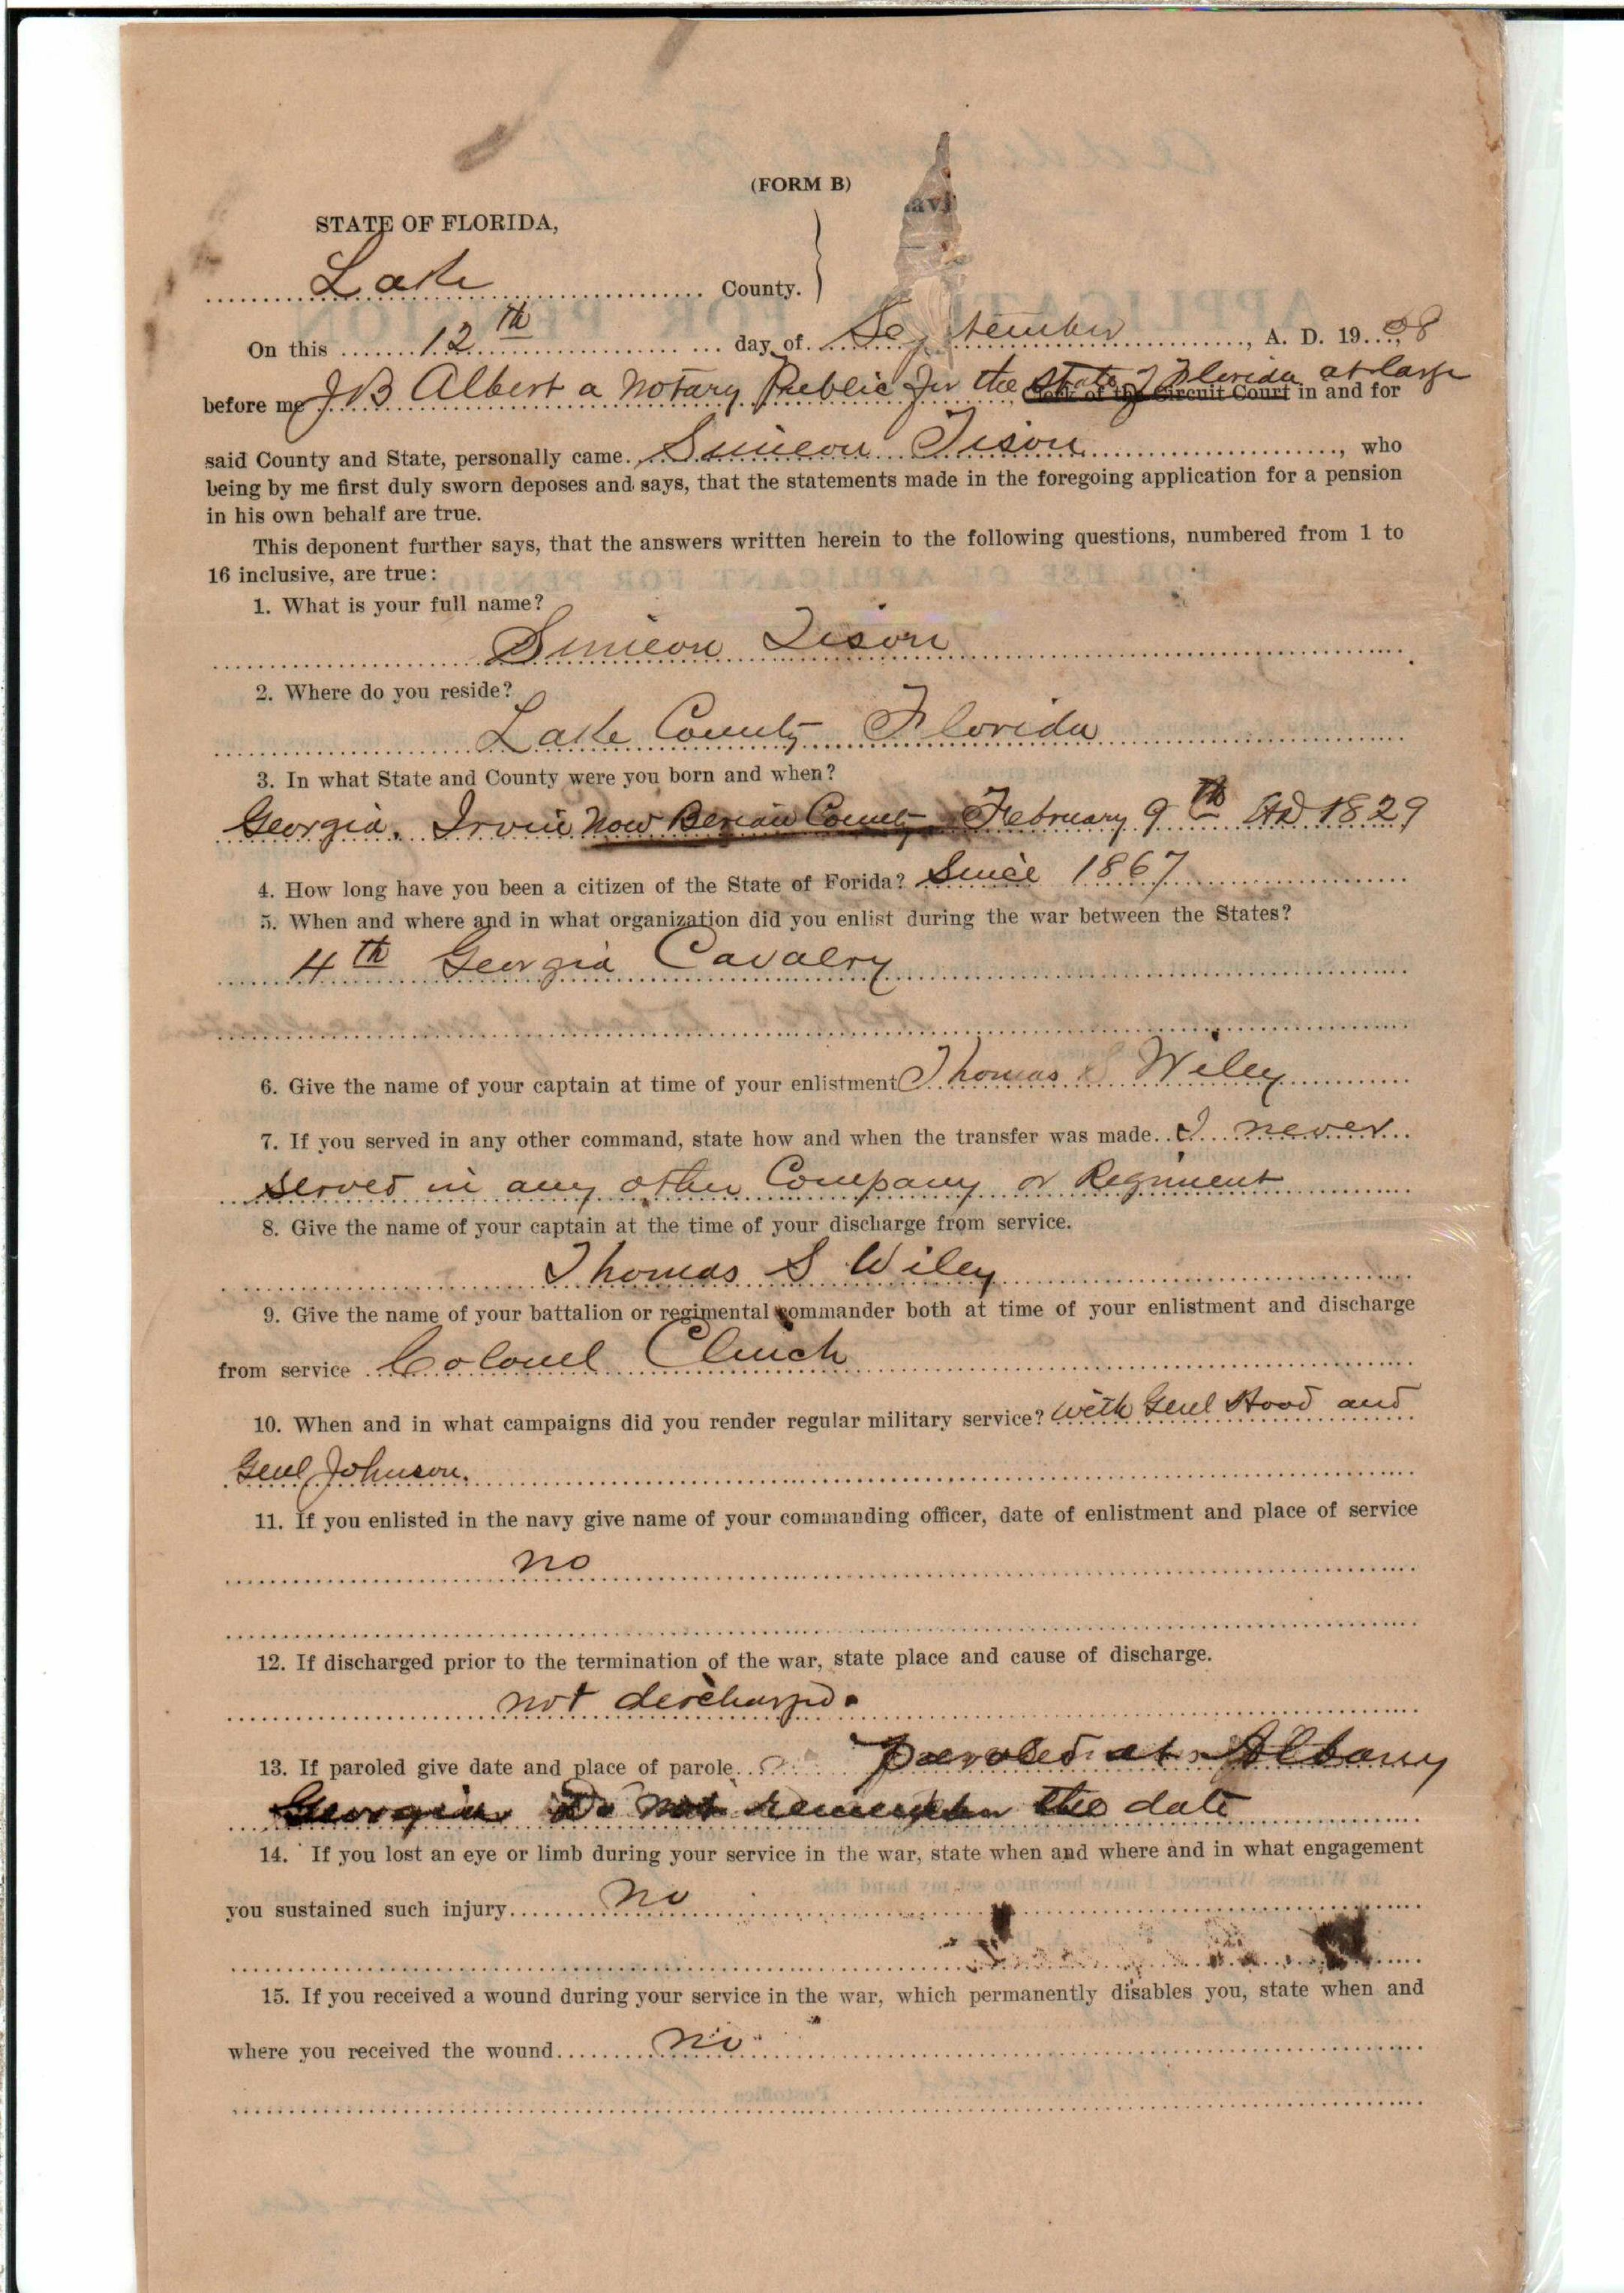 (FORM B)
STATE OF FLORIDA,
Lake County.
On this 12th day of September, A. D. 1908
before me J B Albert a Notary Public for the State of Florida at large Clerk of the Circuit Court in and for
said County and State, personally came Simeon Tison, who
being by me first duly sworn deposes and says, that the statements made in the foregoing application for a pension
in his own behalf are true.
This deponent further says, that the answers written herein to the following questions, numbered from 1 to
16 inclusive, are true:
1. What is your full name?
Simeon Tison
2. Where do you reside?
Lake County Florida
3. In what State and County were you born and when?
Georgia. Irvin Now Berian County February 9th AD 1829
4. How long have you been a citizen of the State of Forida? Since 1867
5. When and where and in what organization did you enlist during the war between the States?
4th Georgia Cavalry
6. Give the name of your captain at time of your enlistment Thomas S Wiley
7. If you served in any other command, state how and when the transfer was made. I never
served in any other Company or Regiment
8. Give the name of your captain at the time of your discharge from service.
Thomas S Wiley
9. Give the name of your battalion or regimental commander both at time of your enlistment and discharge
from service Colonel Clinch
10. When and in what campaigns did you render regular military service? with Genl Hood and
Genl Johnson.
11. If you enlisted in the navy give name of your commanding officer, date of enlistment and place of service
no
12. If discharged prior to the termination of the war, state place and cause of discharge.
not discharged.
13. If paroled give date and place of parole. paroled at Albany
Georgia Do not remember the date
14. If you lost an eye or limb during your service in the war, state when and where and in what engagement
you sustained such injury. no
15. If you received a wound during your service in the war, which permanently disables you, state when and
where you received the wound. no